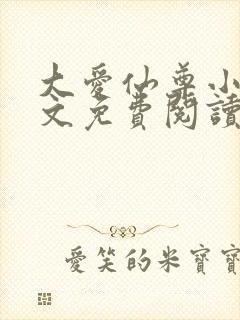 大愛仙尊小
文免費閱讀
愛笑的米寶寶